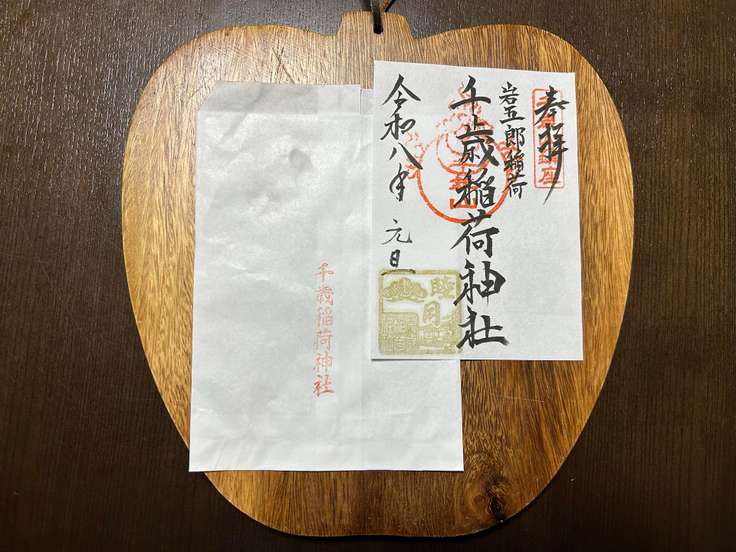 奉拝
岩五郎稲荷
千歳稲荷神社
令和八年 元日
千歳稲荷神社